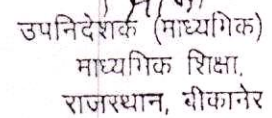 उपनिदेशक (माध्यमिक)
माध्यमिक शिक्षा,
राजस्थान, बीकानेर